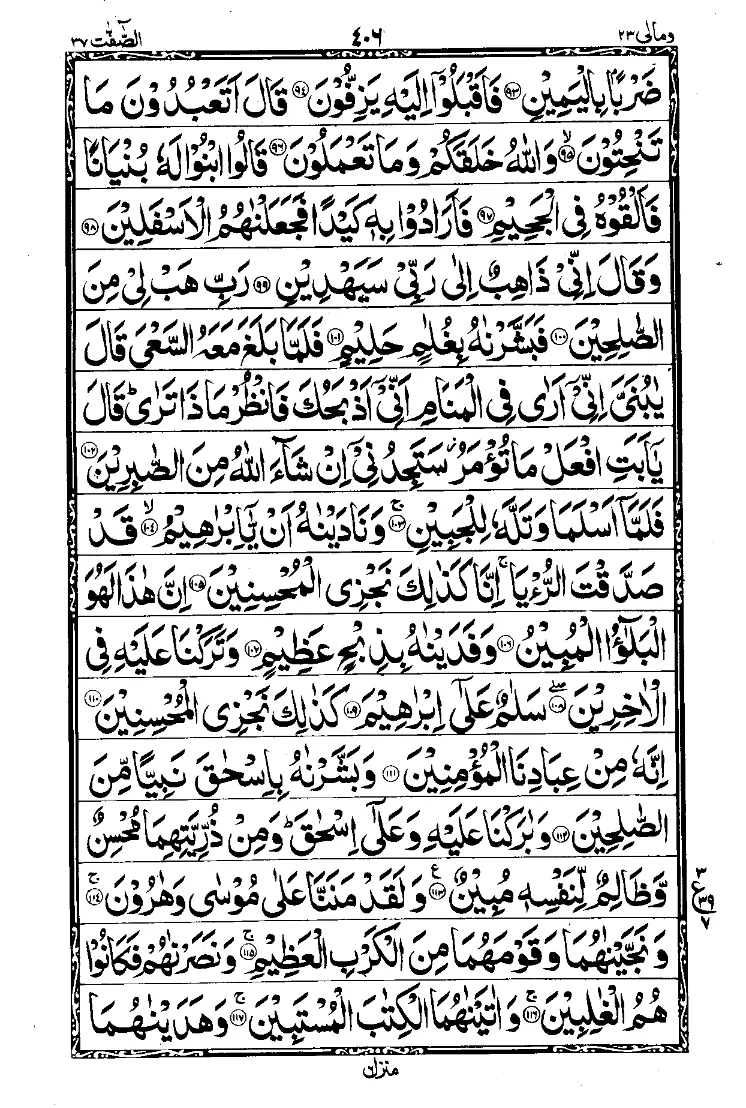 ومالی ٢٣ ٤٠٦ الصّٰٓفّٰت ٣٧
ضَرْبًۢا بِالْيَمِيْنِ ﴿٩٣﴾ فَاَقْبَلُوْٓا اِلَيْهِ يَزِفُّوْنَ ﴿٩٤﴾ قَالَ اَتَعْبُدُوْنَ مَا
تَنْحِتُوْنَ ﴿٩٥﴾ۙ وَاللّٰهُ خَلَقَكُمْ وَمَا تَعْمَلُوْنَ ﴿٩٦﴾ قَالُوا ابْنُوْا لَهٗ بُنْيَانًا
فَاَلْقُوْهُ فِى الْجَحِيْمِ ﴿٩٧﴾ فَاَرَادُوْا بِهٖ كَيْدًا فَجَعَلْنٰهُمُ الْاَسْفَلِيْنَ ﴿٩٨﴾
وَقَالَ اِنِّىْ ذَاهِبٌ اِلٰى رَبِّىْ سَيَهْدِيْنِ ﴿٩٩﴾ رَبِّ هَبْ لِىْ مِنَ
الصّٰلِحِيْنَ ﴿١٠٠﴾ فَبَشَّرْنٰهُ بِغُلٰمٍ حَلِيْمٍ ﴿١٠١﴾ فَلَمَّا بَلَغَ مَعَهُ السَّعْىَ قَالَ
يٰبُنَىَّ اِنِّىْٓ اَرٰى فِى الْمَنَامِ اَنِّىْٓ اَذْبَحُكَ فَانْظُرْ مَاذَا تَرٰىؕ قَالَ
يٰٓاَبَتِ افْعَلْ مَا تُؤْمَرُ سَتَجِدُنِىْٓ اِنْ شَآءَ اللّٰهُ مِنَ الصّٰبِرِيْنَ ﴿١٠٢﴾
فَلَمَّآ اَسْلَمَا وَتَلَّهٗ لِلْجَبِيْنِ ﴿١٠٣﴾ۚ وَنَادَيْنٰهُ اَنْ يّٰٓاِبْرٰهِيْمُ ﴿١٠٤﴾ۙ قَدْ
صَدَّقْتَ الرُّءْيَاۚ اِنَّا كَذٰلِكَ نَجْزِى الْمُحْسِنِيْنَ ﴿١٠٥﴾ اِنَّ هٰذَا لَهُوَ
الْبَلٰٓؤُا الْمُبِيْنُ ﴿١٠٦﴾ وَفَدَيْنٰهُ بِذِبْحٍ عَظِيْمٍ ﴿١٠٧﴾ وَتَرَكْنَا عَلَيْهِ فِى
الْاٰخِرِيْنَ ﴿١٠٨﴾ۖ سَلٰمٌ عَلٰٓى اِبْرٰهِيْمَ ﴿١٠٩﴾ كَذٰلِكَ نَجْزِى الْمُحْسِنِيْنَ ﴿١١٠﴾
اِنَّهٗ مِنْ عِبَادِنَا الْمُؤْمِنِيْنَ ﴿١١١﴾ وَبَشَّرْنٰهُ بِاِسْحٰقَ نَبِيًّا مِّنَ
الصّٰلِحِيْنَ ﴿١١٢﴾ وَبٰرَكْنَا عَلَيْهِ وَعَلٰٓى اِسْحٰقَؕ وَمِنْ ذُرِّيَّتِهِمَا مُحْسِنٌ
وَّظَالِمٌ لِّنَفْسِهٖ مُبِيْنٌ ﴿١١٣﴾ع وَلَقَدْ مَنَنَّا عَلٰى مُوْسٰى وَهٰرُوْنَ ﴿١١٤﴾ۚ ٣ ع ٣٩ ٧
وَنَجَّيْنٰهُمَا وَقَوْمَهُمَا مِنَ الْكَرْبِ الْعَظِيْمِ ﴿١١٥﴾ۚ وَنَصَرْنٰهُمْ فَكَانُوْا
هُمُ الْغٰلِبِيْنَ ﴿١١٦﴾ۚ وَاٰتَيْنٰهُمَا الْكِتٰبَ الْمُسْتَبِيْنَ ﴿١١٧﴾ۚ وَهَدَيْنٰهُمَا
منزل ٦